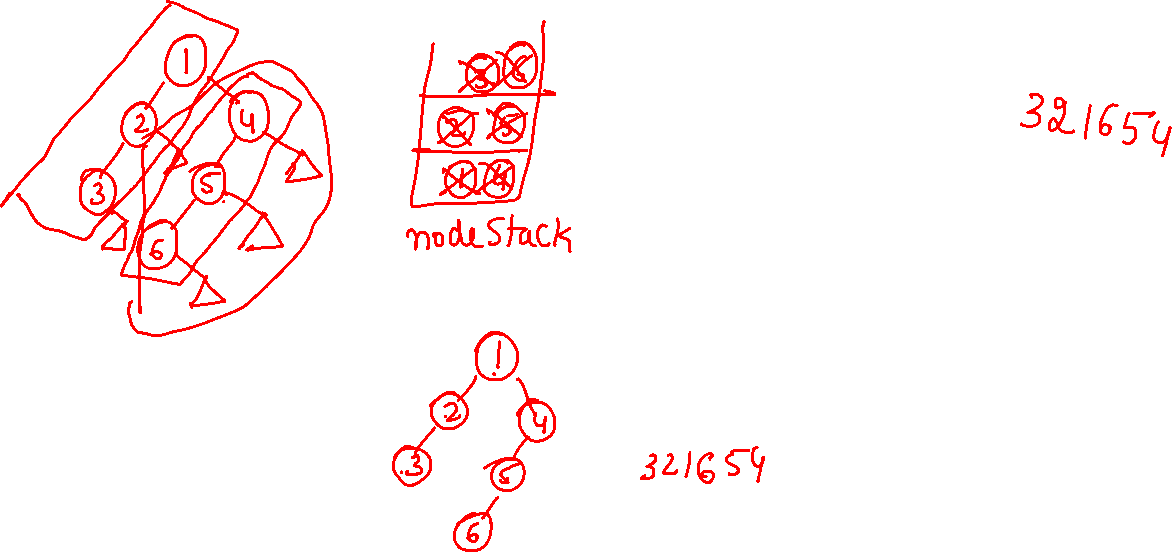 1
2
4
3
5
6
3 6
2 5
1 4
nodeStack
321654
1
2
4
3
5
6
321654